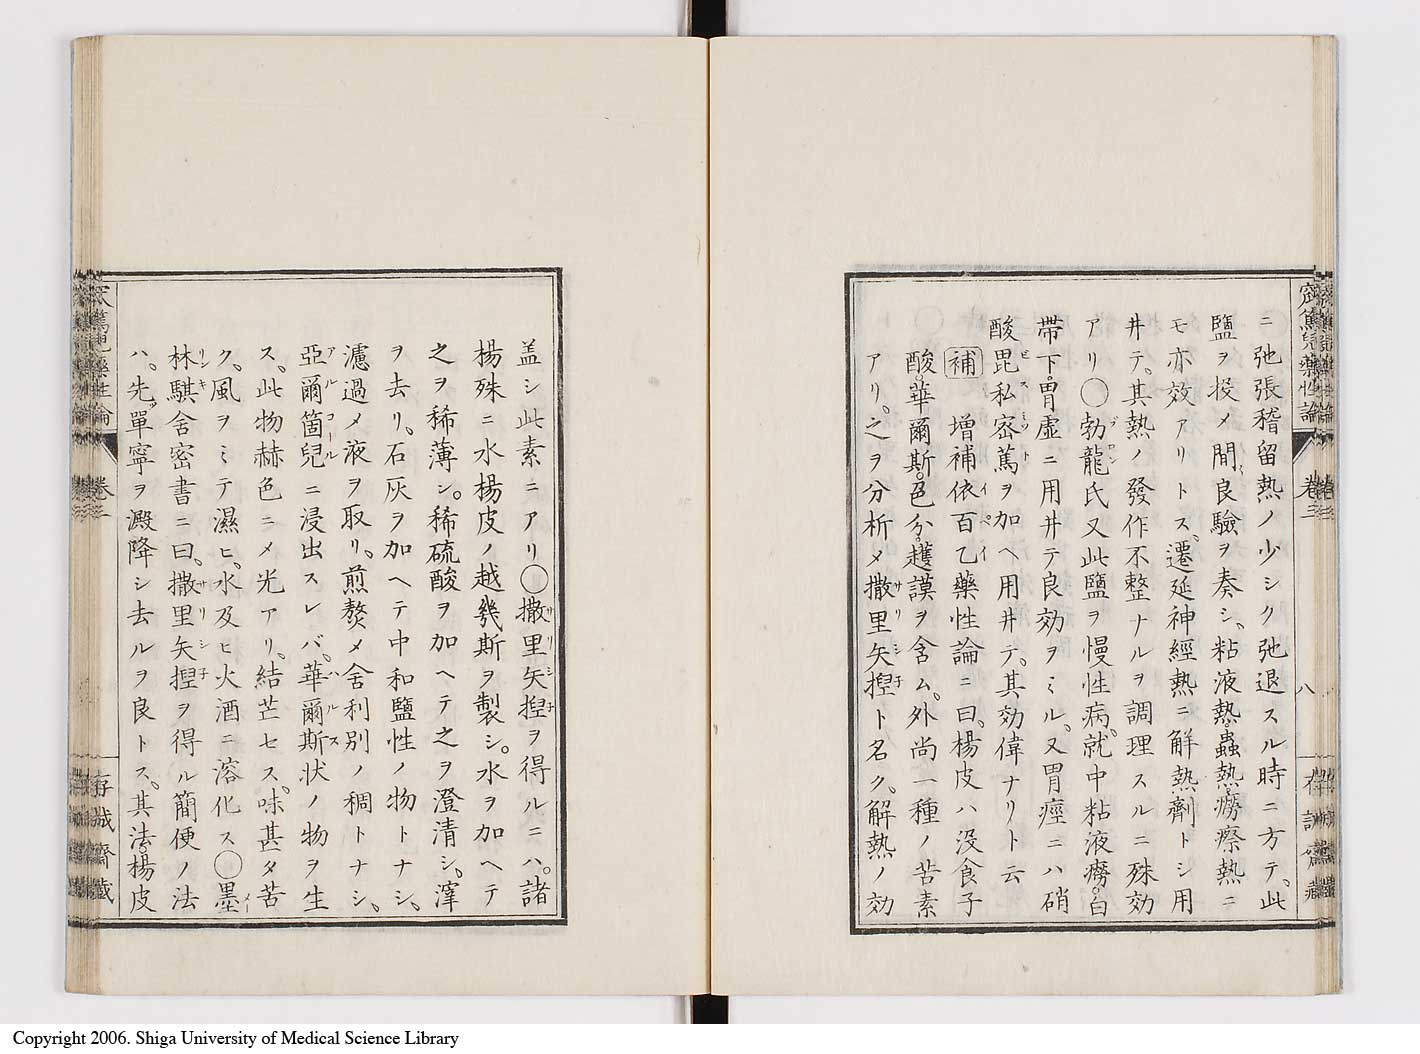 ニ弛張稽留熱ノ少シク弛退スル時ニ方テ、此
鹽ヲ投メ間良驗ヲ奏シ、粘液熱、蟲熱、癆瘵熱ニ
モ亦效アリトス、遷延神經熱ニ解熱劑トシ用
井テ、其熱ノ發作不整ナルヲ調理スルニ殊効
アリ〇勃龍氏又此鹽ヲ慢性病、就中粘液癆、白
帶下胃虛ニ用井テ良効ヲミル、又胃痙ニハ硝
酸毘私密篤ヲ加ヘ用井テ、其効偉ナリト云
補 増補依百乙藥性論ニ曰、楊皮ハ没食子
酸、華爾斯、色分、越謨ヲ含ム、外尚一種ノ苦素
アリ、之ヲ分析メ撒里矢揑ト名ク、解熱ノ効
窊篤兒藥性論
卷三
八
存誠齋藏
盖シ此素ニアリ〇撒里矢揑ヲ得ルニハ、諸
楊殊ニ水楊皮ノ越幾斯ヲ製シ、水ヲ加ヘテ
之ヲ稀薄シ、稀硫酸ヲ加ヘテ之ヲ澄清シ、滓
ヲ去リ、石灰ヲ加ヘテ中和鹽性ノ物トナシ、
濾過メ液ヲ取リ、煎熬メ舍利別ノ稠トナシ、
亞爾箇兒ニ浸出スレバ、華爾斯状ノ物ヲ生
ス、此物赫色ニメ光アリ、結芒セス、味甚タ苦
ク、風ヲミテ濕ヒ、水及ヒ火酒ニ溶化ス〇墨
林騏舍密書ニ曰、撒里矢揑ヲ得ル簡便ノ法
ハ、先單寧ヲ澱降シ去ルヲ良トス、其法、楊皮
窊篤兒藥性論
卷三
存誠齋藏
Copyright 2006. Shiga University of Medical Science Library